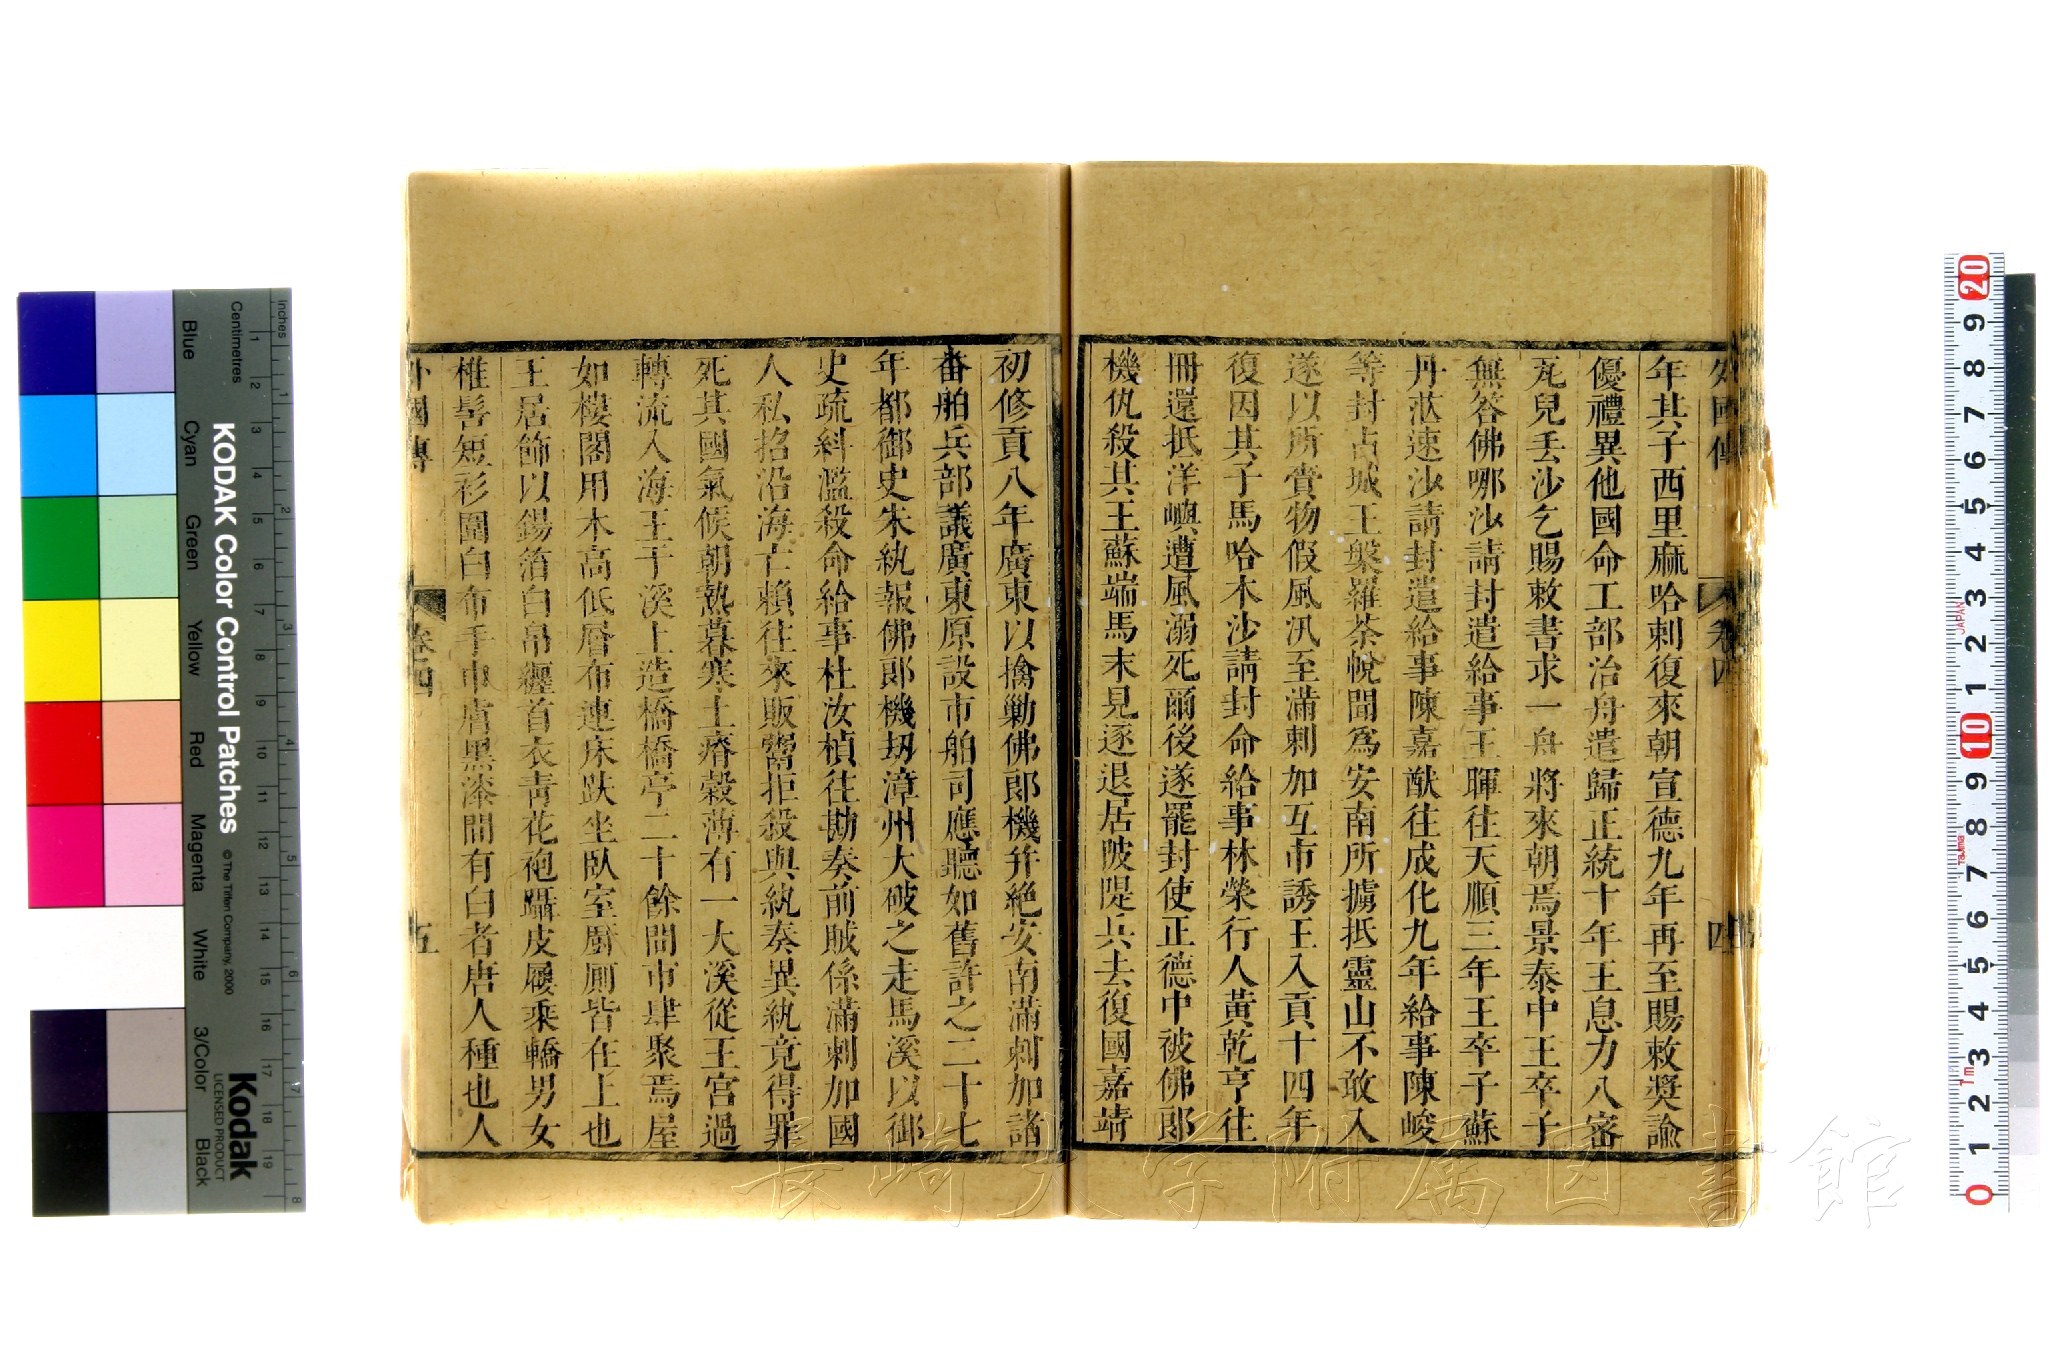 外國傳 卷四 四
年其子西里麻哈剌復來朝宣德九年再至賜敕獎諭
優禮異他國命工部治舟遣歸正統十年王息力八密
瓦兒丟沙乞賜敕書求一舟將來朝焉景泰中王卒子
無答佛哪沙請封遣給事王暉往天順三年王卒子蘇
丹茫速沙請封遣給事陳嘉猷往成化九年給事陳峻
等封占城王槃羅茶悅聞爲安南所擄抵靈山不敢入
遂以所賫物假風汛至滿剌加互市誘王入貢十四年
復因其子馬哈木沙請封命給事林榮行人黃乾亨往
冊還抵洋嶼遭風溺死爾後遂罷封使正德中被佛郎
機仇殺其王蘇端馬末見逐退居陂隄兵去復國嘉靖
初修貢八年廣東以擒勦佛郎機幷絕安南滿剌加諸
番舶兵部議廣東原設市舶司應聽如舊許之二十七
年都御史朱紈報佛郎機刧漳州大破之走馬溪以御
史疏糾濫殺命給事杜汝楨往勘奏前賊係滿剌加國
人私招沿海亡賴往來販鬻拒殺與紈奏異紈竟得罪
死其國氣候朝熱暮寒土瘠穀薄有一大溪從王宮過
轉流入海王于溪上造橋橋亭二十餘間市肆聚焉屋
如樓閣用木高低層布連床趺坐臥室廚廁皆在上也
王居飾以錫箔白帛纒首衣靑花袍躡皮履乘轎男女
椎髻短衫圍白布手巾膚黑漆間有白者唐人種也人
外國傳 卷四 五
KODAK Color Control Patches
© The Tiffen Company, 2000
Kodak
LICENSED PRODUCT
Centimetres
inches
Blue Cyan Green Yellow Red Magenta White 3/Color Black
1 2 3 4 5 6 7 8 9 10 11 12 13 14 15 16 17 18 19
1 2 3 4 5 6 7 8
20 9 8 7 6 5 4 3 2 1 10 9 8 7 6 5 4 3 2 1 0
JAPAN
Tajima
Tm
長崎大学附属図書館